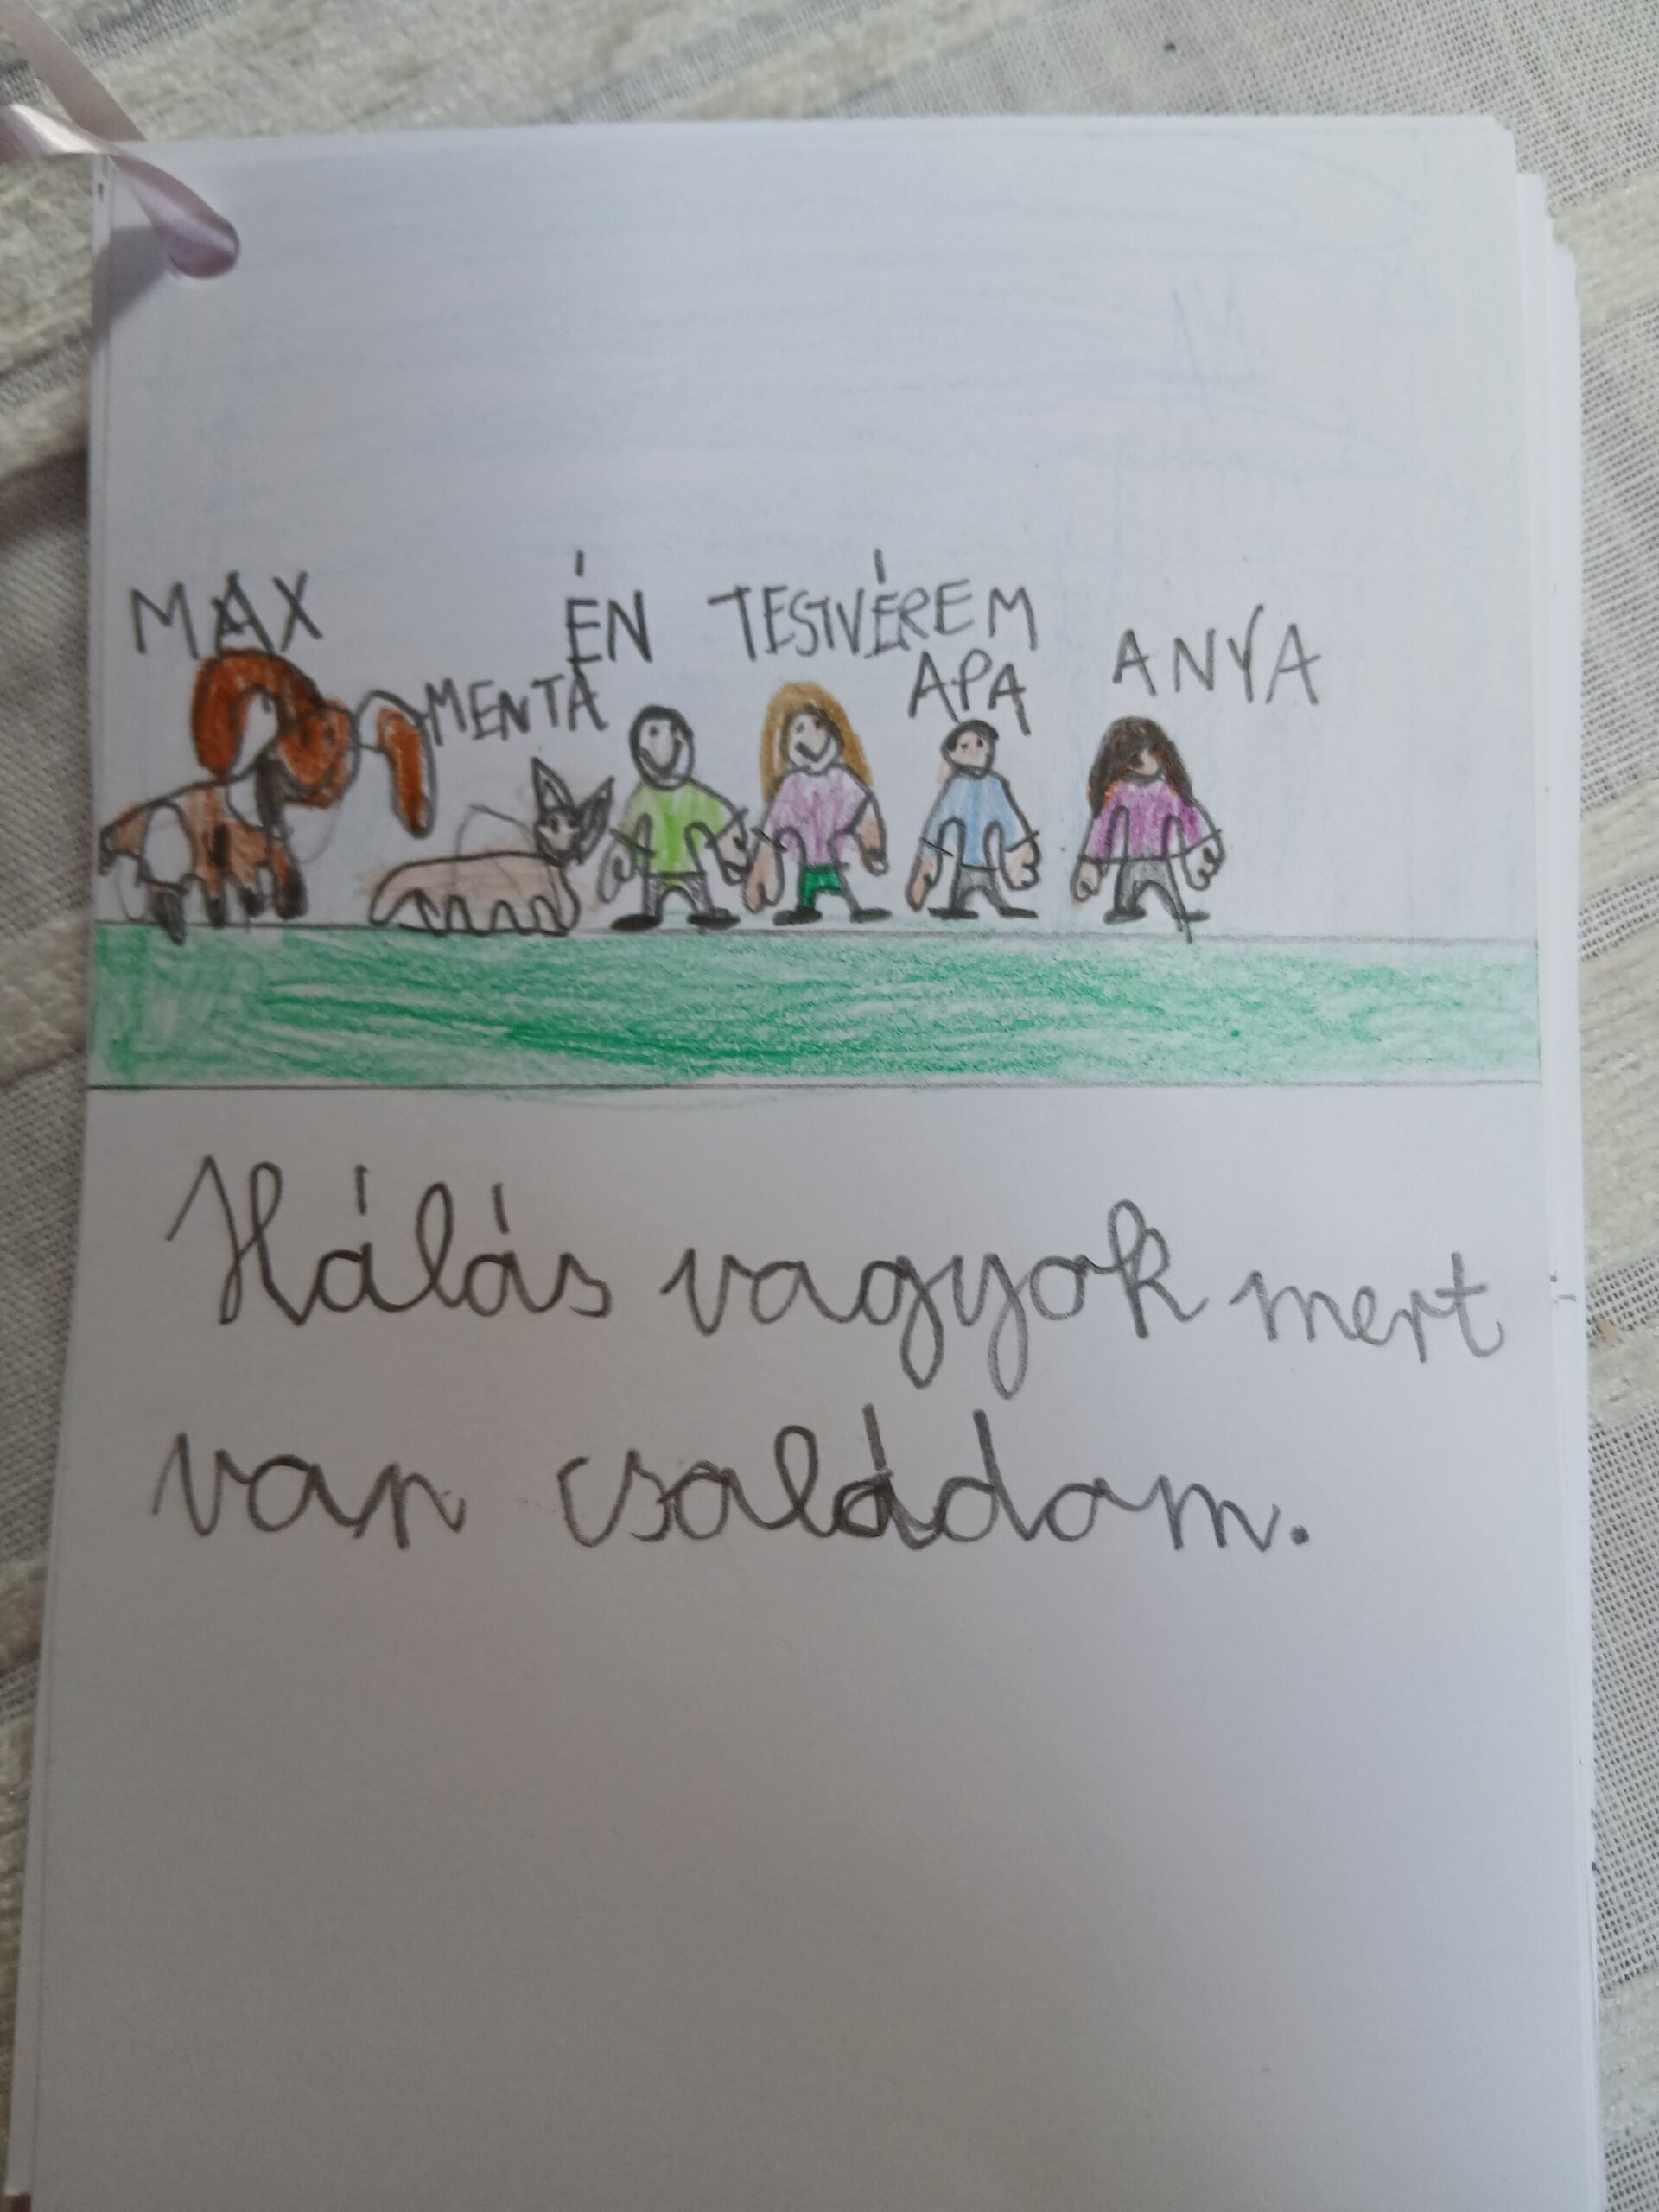 MAX
ÉN TESTVÉREM
MENTA
APA
ANYA
Hálás vagyok mert
van családom.